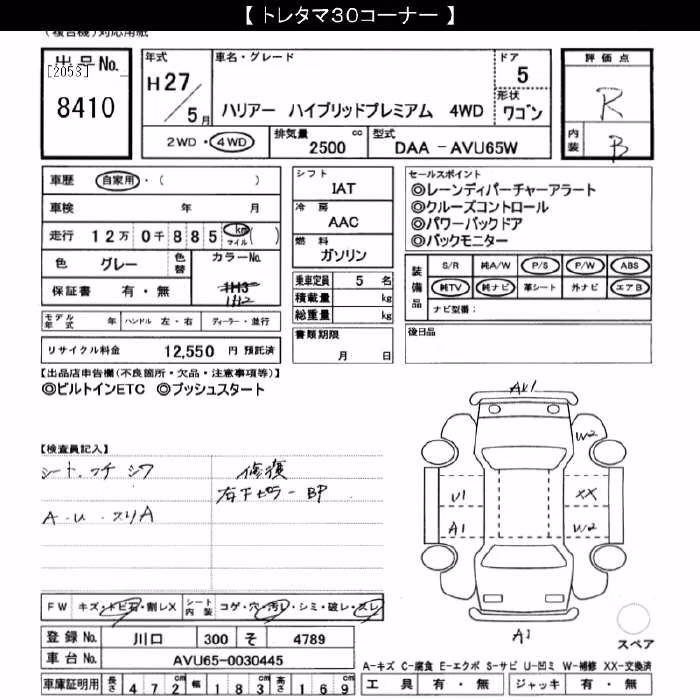 【 トレタマ30コーナー 】
(複合機)対応用紙
出品No.
[2053]
8410
年式
H27/5月
車名・グレード
ハリアー ハイブリッドプレミアム 4WD
ドア
5
形状
ワゴン
評価点
R
内装
B
2WD・4WD
排気量
2500 cc
型式
DAA - AVU65W
車歴 自家用・( )
車検 年 月
走行 12万 0千 885 km マイル ( )
色 グレー
色替
カラーNo.
1H3
1H2
保証書 有・無
モデル年式 年 ハンドル 左・右 ディーラー・並行
リサイクル料金 12,550 円 預託済
シフト
IAT
冷房
AAC
燃料
ガソリン
乗車定員 5 名
積載量 kg
総重量 kg
書類期限
月 日
セールスポイント
◎レーンディパーチャーアラート
◎クルーズコントロール
◎パワーバックドア
◎バックモニター
装備品
S/R 純A/W P/S P/W ABS
純TV 純ナビ 革シート 外ナビ エアB
ナビ型番:
後日品
【出品店申告欄(不良箇所・欠品・注意事項等)】
◎ビルトインETC ◎プッシュスタート
【検査員記入】
シート・ウチ シワ
A・U・スリA
修復
右下ピラーBP
AU1
W2
U1
XX
A1
W2
A1
スペア
FW キズ・トビ石・割レX シート内装 コゲ・穴・汚レ・シミ・破レ・スレ
登録No. 川口 300 そ 4789
車台No. AVU65-0030445
車庫証明用 長さ 472cm 幅 183cm 高さ 169cm
A-キズ C-腐食 E-エクボ S-サビ U-凹ミ W-補修 XX-交換済
工具 有・無 ジャッキ 有・無